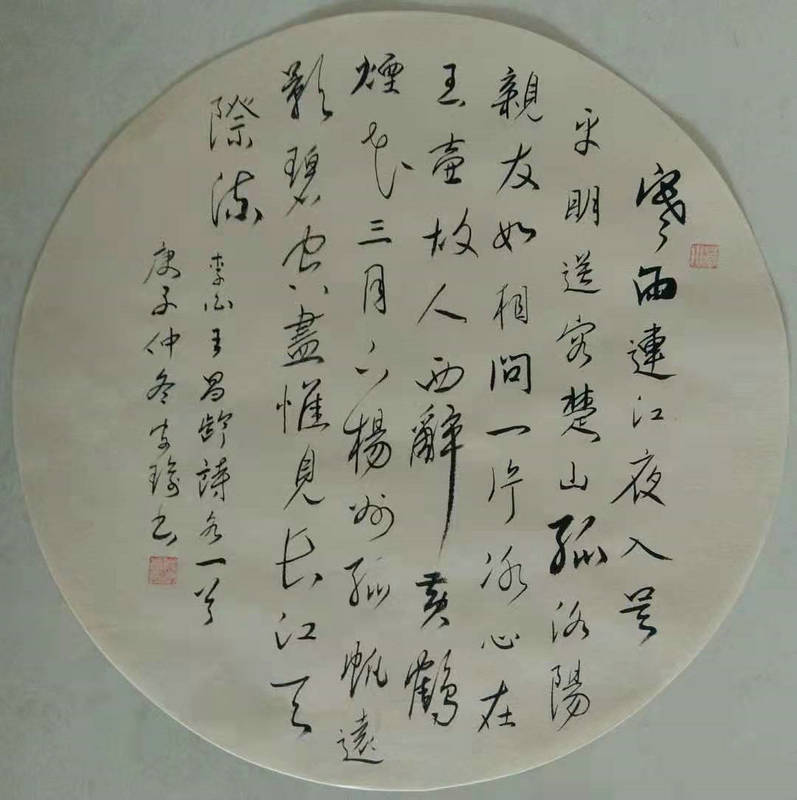 寒雨連江夜入吴
平明送客楚山孤洛陽
親友如相問一片冰心在
玉壺故人西辭黄鶴
煙花三月下楊州孤帆遠
影碧空盡惟見長江天
際流
李白王昌齡詩各一首
庚子仲冬书